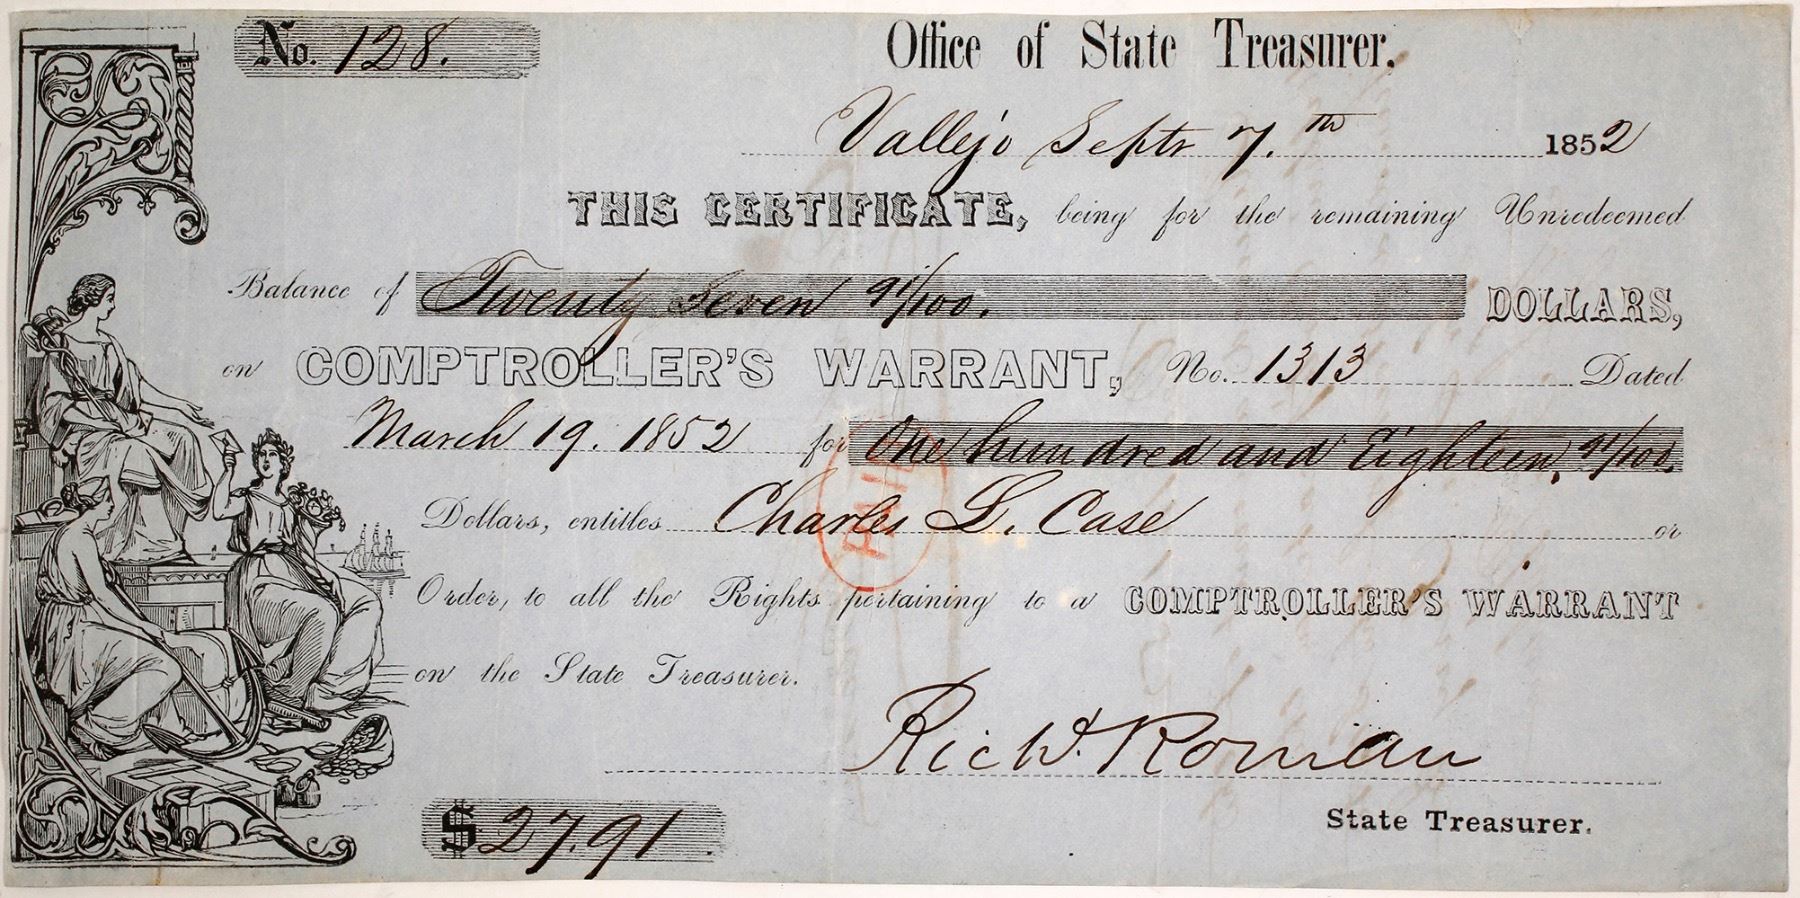 No. 128.
Office of State Treasurer.
Vallejo Septr 7.th 1852
THIS CERTIFICATE, being for the remaining Unredeemed
Balance of Twenty Seven 91/100. DOLLARS,
on COMPTROLLER'S WARRANT, No. 1313 Dated
March 19. 1852 for One hundred and Eighteen, 91/100.
Dollars, entitles Charles L. Case or
PAID
Order, to all the Rights pertaining to a COMPTROLLER'S WARRANT
on the State Treasurer.
Richd. Roman
State Treasurer.
$ 27.91.